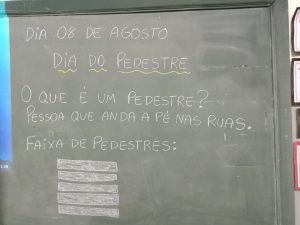 DIA 08 DE AGOSTO
DIA DO PEDESTRE
O QUE É UM PEDESTRE?
PESSOA QUE ANDA A PÉ NAS RUAS.
FAIXA DE PEDESTRES: